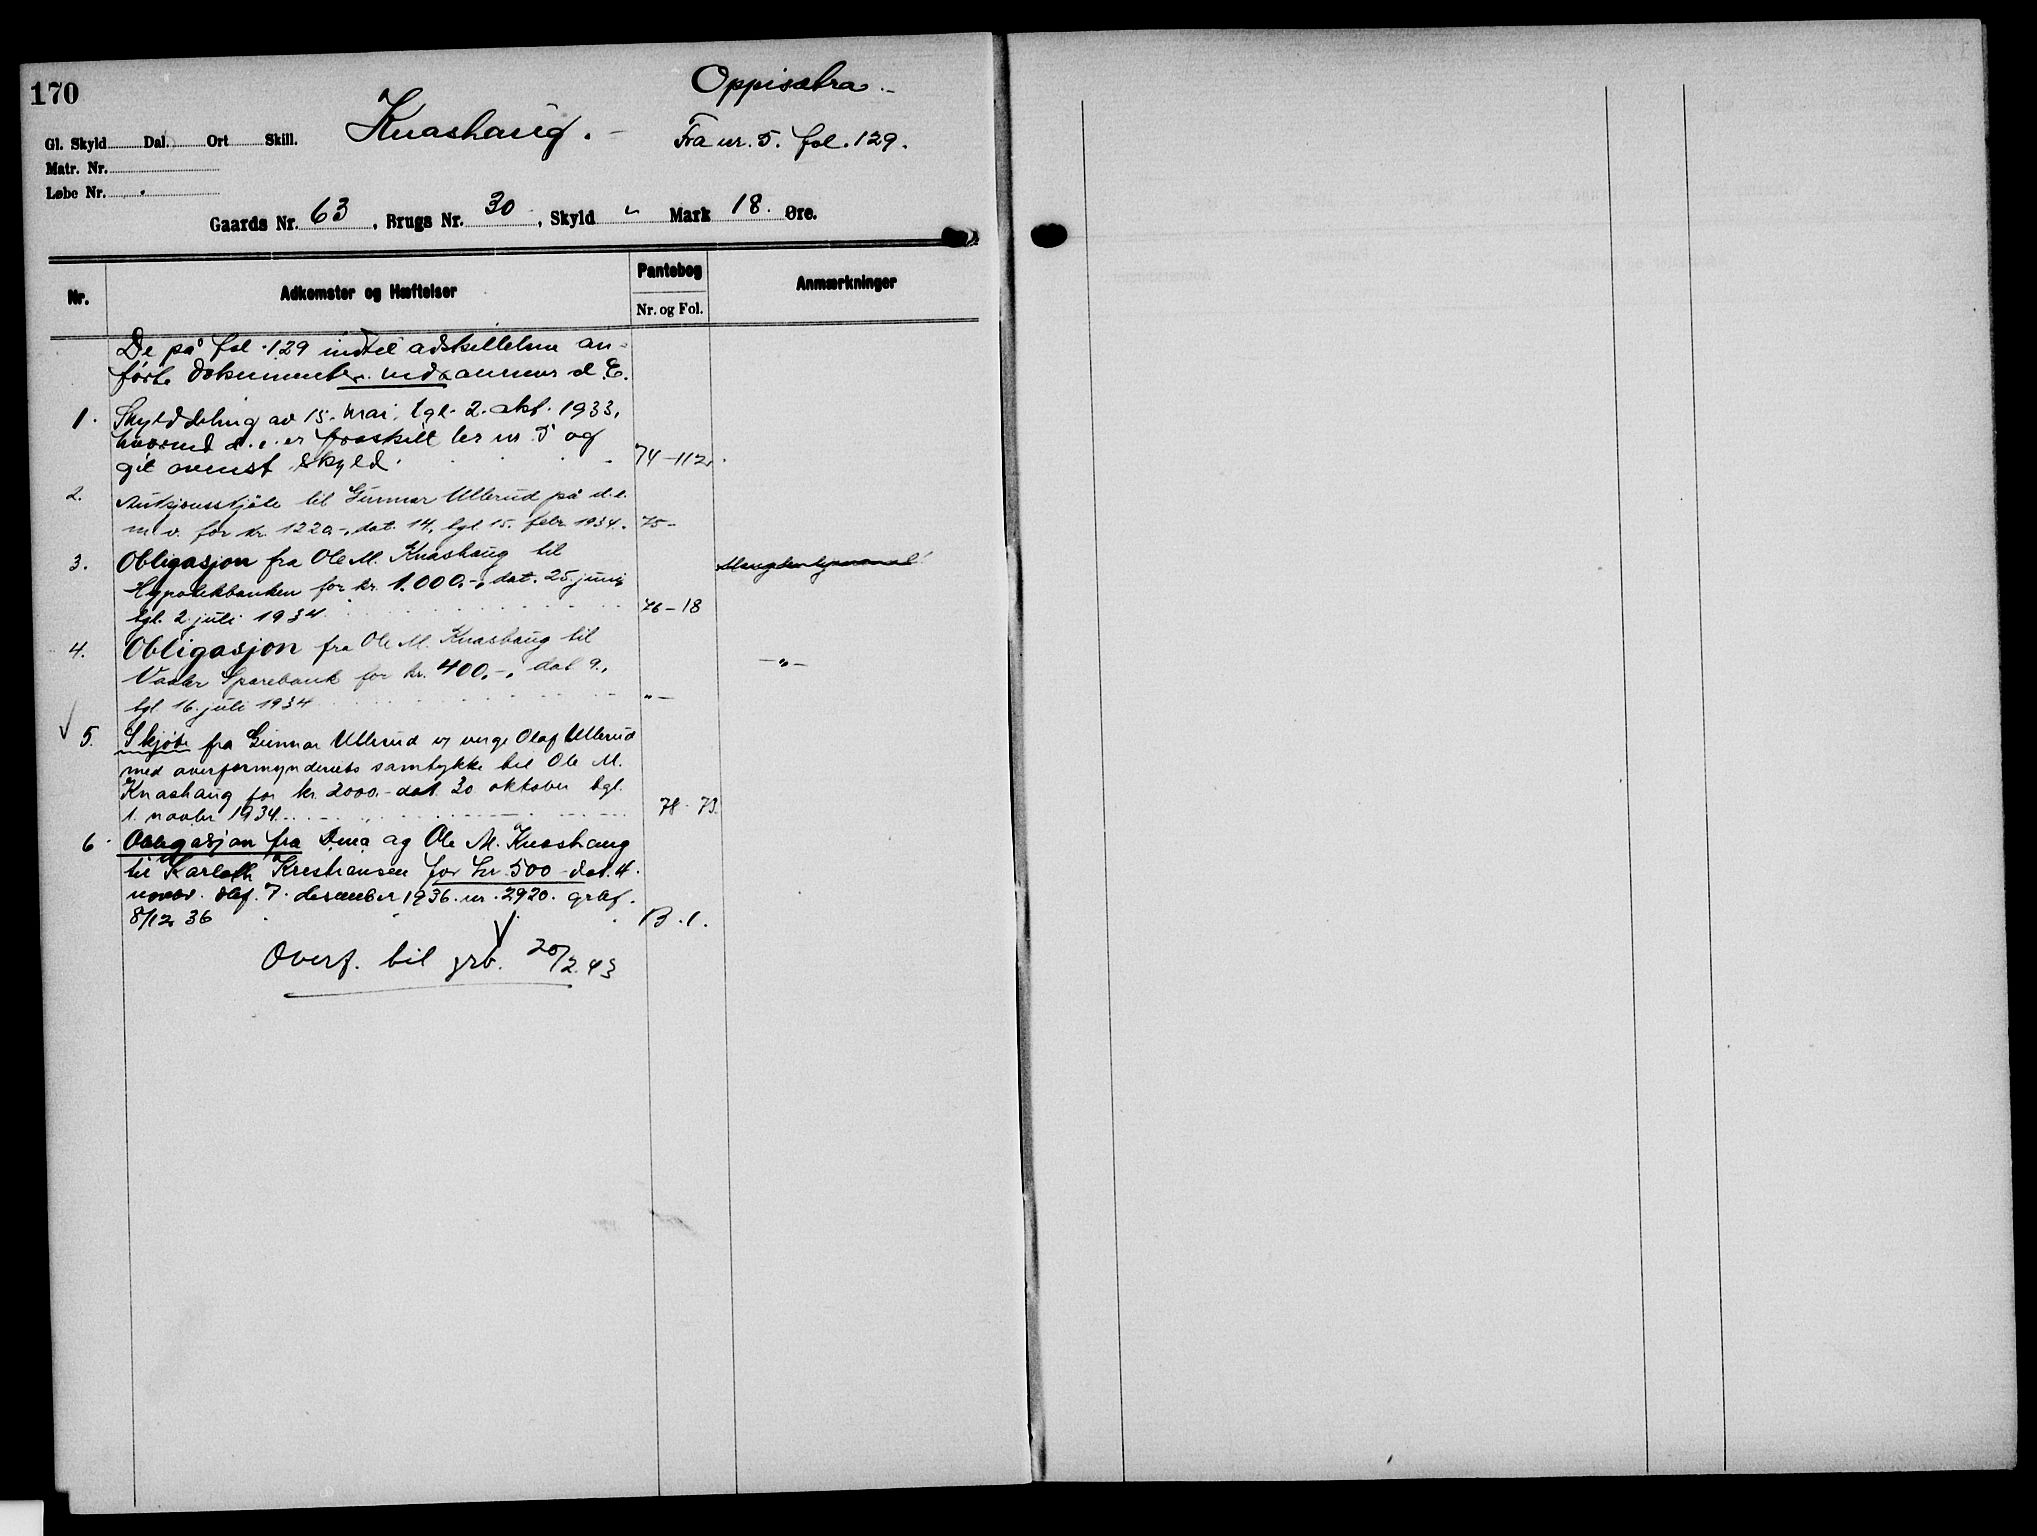 170
Oppisætra.-
Knashaug.-
Fra nr. 5. fol. 129.
Gl. Skyld Dal. Ort Skill.
Matr. Nr.
Løbe Nr.
Gaards Nr. 63, Brugs Nr. 30, Skyld " Mark 18. Øre.
Nr. Adkomster og Hæftelser Pantebog Anmærkninger
Nr. og Fol.
De på fol. 129 indtil adskillelsen an-
førte dokumenter. d. E.
1. Skylddeling av 15. mai, tgl. 2. okt. 1933,
hvorved d. e. er fraskilt br nr 5 og
git ovenst skyld. 74-112.
2. Auksjonsskjøte til Gunnar Ullerud på d.e.
m.v. for kr. 1220-, dat. 14, tgl. 15. febr 1934. 75-
3. Obligasjon fra Ole M. Knashaug til
Hypotekbanken for kr. 1.000.-, dat. 25. juni,
tgl. 2. juli 1934. 76-18
4. Obligasjon fra Ole M. Knashaug til
Vaaler Sparebank for kr. 400.-, dat 9., -"-
tgl. 16. juli 1934 "-
5. Skjøte fra Gunnar Ullerud v/ verge Olaf Ullerud
med overformynderiets samtykke til Ole M.
Knashaug for kr. 2000.- dat. 30 oktober tgl.
1. novbr 1934. 78-73.
6. Obligasjon fra Dina og Ole M. Knashaug
til Karl Kristiansen for kr. 500 dat. 4.
novbr. dbf. 7. desember 1936. nr. 2920. grbf.
8/12 36 B.1.
Overf. til grb. 20/2.43